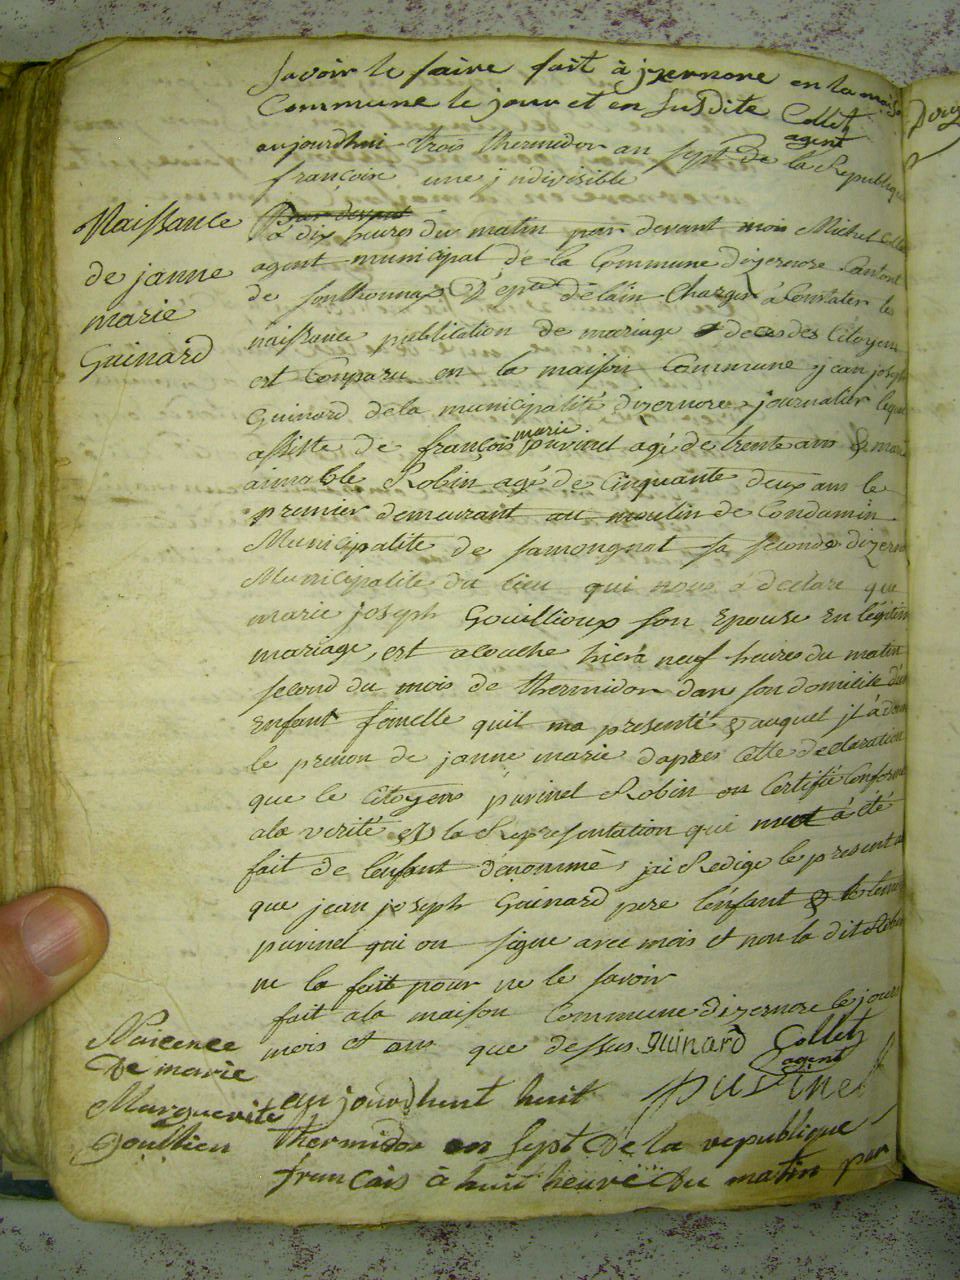 savoir le faire fait à jzernore en la maison
Commune le jour et en susdite Collet
agent
aujourdhui trois thermidor an sept de la Republique
françoise une jndivisible
Naissance
de janne
marie
Guinard
Par devant
à dix heures du matin par devant moi Michel Collet
agent municipal de la Commune dizernore Canton
de sonthonnax Dépt delain Chargé à Constater les
naissance publication de mariage & deces des Citoyens
est Comparu en la maison Commune jean joseph
Guinard dela municipalité dizernore journalier lequel
assisté de françois marie puvinel agé de trente ans &
aimable Robin agé de cinquante deux ans le
premier demeurant au moulin de Condamin
Municipalite de samongnat la seconde dizernore
Municipalité du lieu qui nous a déclaré que
marie joseph Gouillioux son Epouse en légitime
mariage, est acouché hier à neuf heures du matin
second du mois de thermidor dan son domicile d'un
enfant femelle quil ma presenté & auquel jl à donné
le prenon de janne marie dapres cette declaration
que le Citoyens puvinel Robin on Certifié Conforme
ala verité & la Representation qui meut à été
fait de l'enfant denommé, jai Redigé le present acte
que jean joseph Guinard pere lenfant & le temoin
puvinel qui on signé avec mois et non la dit Robin
ne la fait pour ne le savoir
fait ala maison Commune dizernore le jour
mois et ans que dessus guinard Collet
agent
puvinel
Naicence
De marie
Marguerite
Gouilliou
aujourdhuit huit
thermidor en sept De la republique
francais à huit heure Du matin par